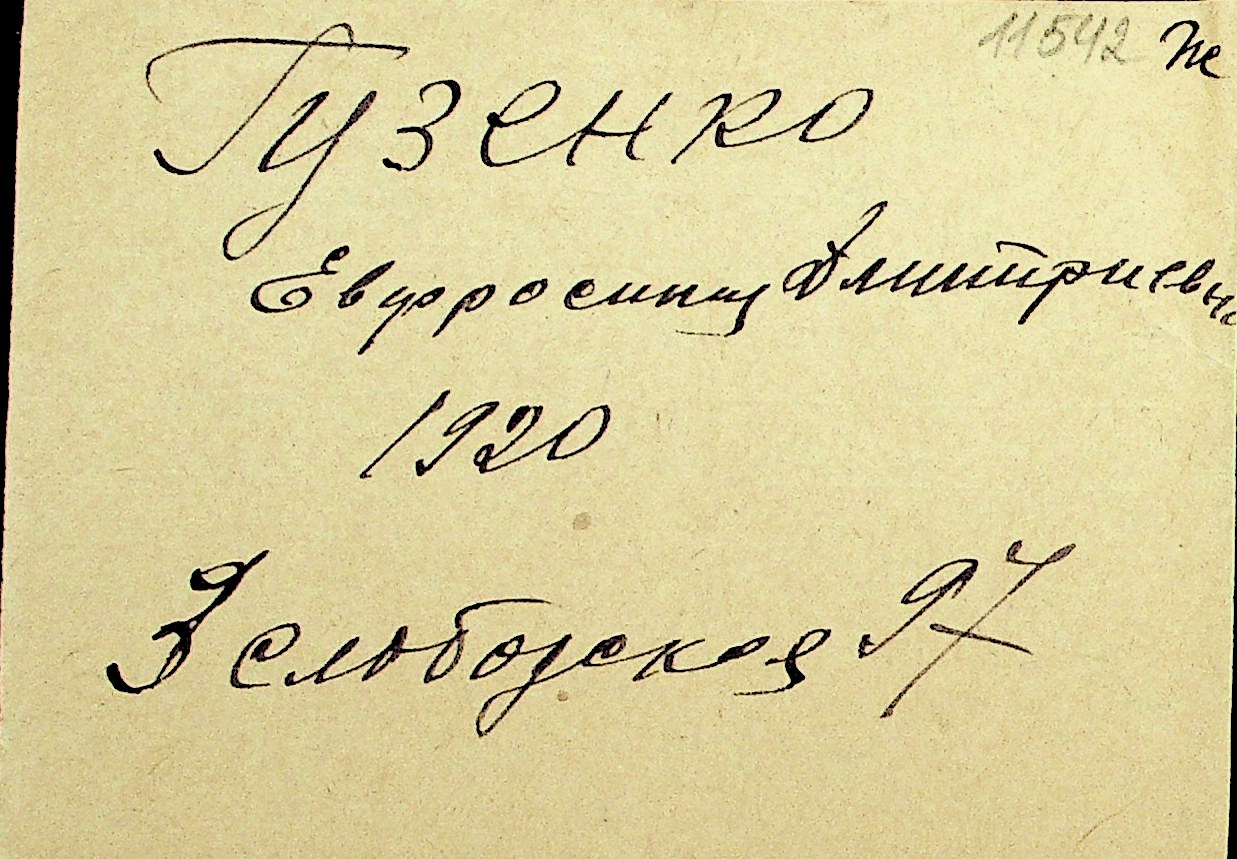 11542 Же
Гузенко
Евфросиния Дмитриевна
1920
3 слободская 97